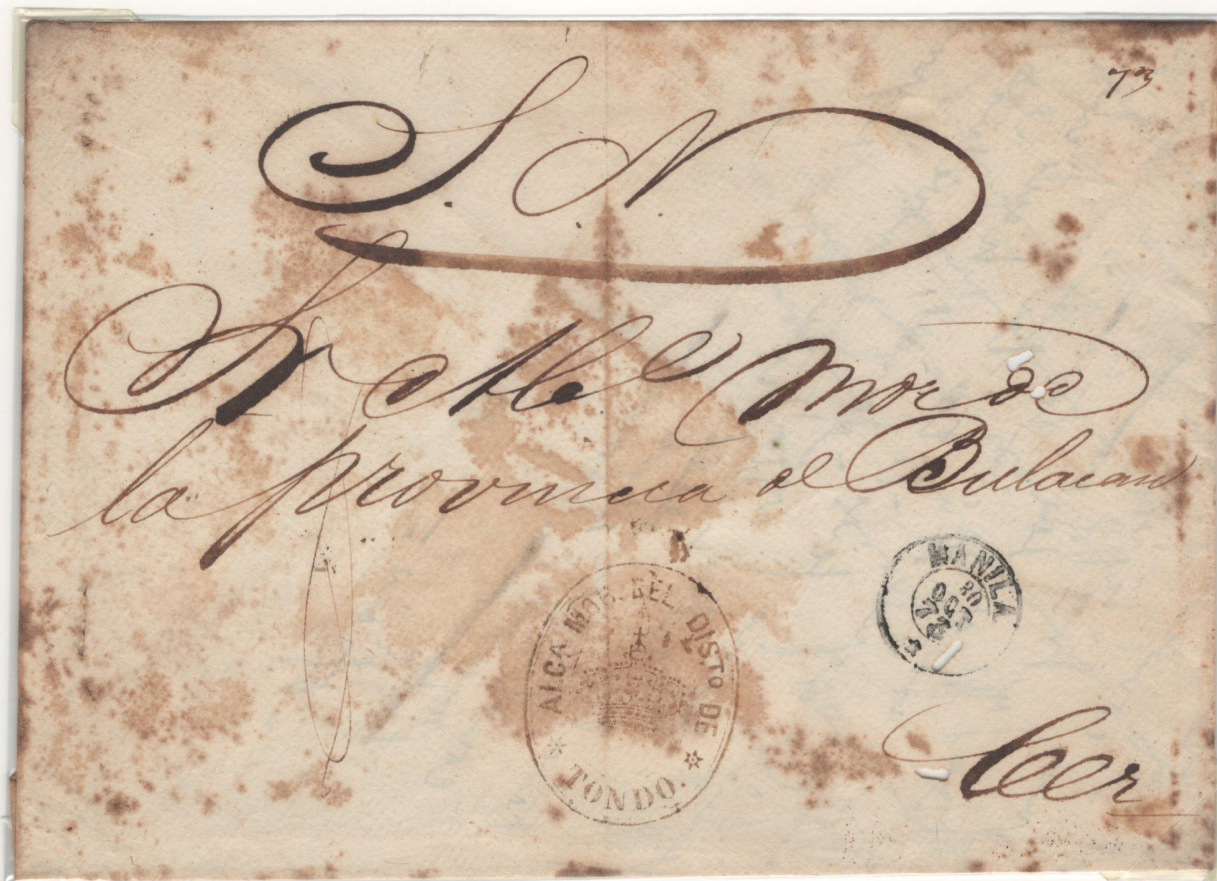 73
S. N.
Sr Alce Mor de
la provincia de Bulacan
MANILA
20
OCT
ALCA MOR. DEL DISTO DE
TONDO.